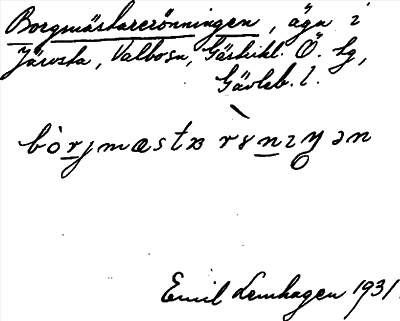 Borgmästarerönningen, äga i
Järvsta, Valbo sn, Gästrikl. Ö. tg,
Gävleb. l.
bòrjmæstɐ rɤnɪŋən
Emil Lenhagen 1931.